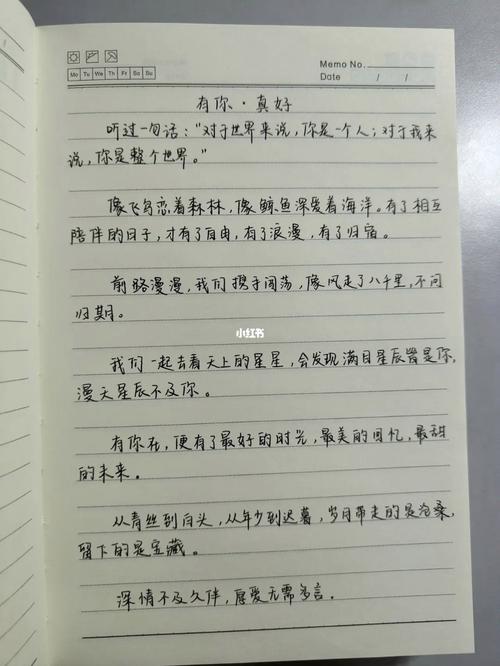 Memo No.
Mo Tu We Th Fr Sa Su
Date / /
有你·真好
听过一句话：“对于世界来说，你是一个人；对于我来
说，你是整个世界。”
像飞鸟恋着森林，像鲸鱼深爱着海洋。有了相互
陪伴的日子，才有了自由，有了浪漫，有了归宿。
前路漫漫，我们携手闯荡，像风走了八千里，不问
归期。
小红书
我们一起去看天上的星星，会发现满目星辰皆是你，
漫天星辰不及你。
有你在，便有了最好的时光，最美的回忆，最甜
的未来。
从青丝到白头，从年少到迟暮，岁月带走的是沧桑，
留下的是宝藏。
深情不及久伴，厚爱无需多言。